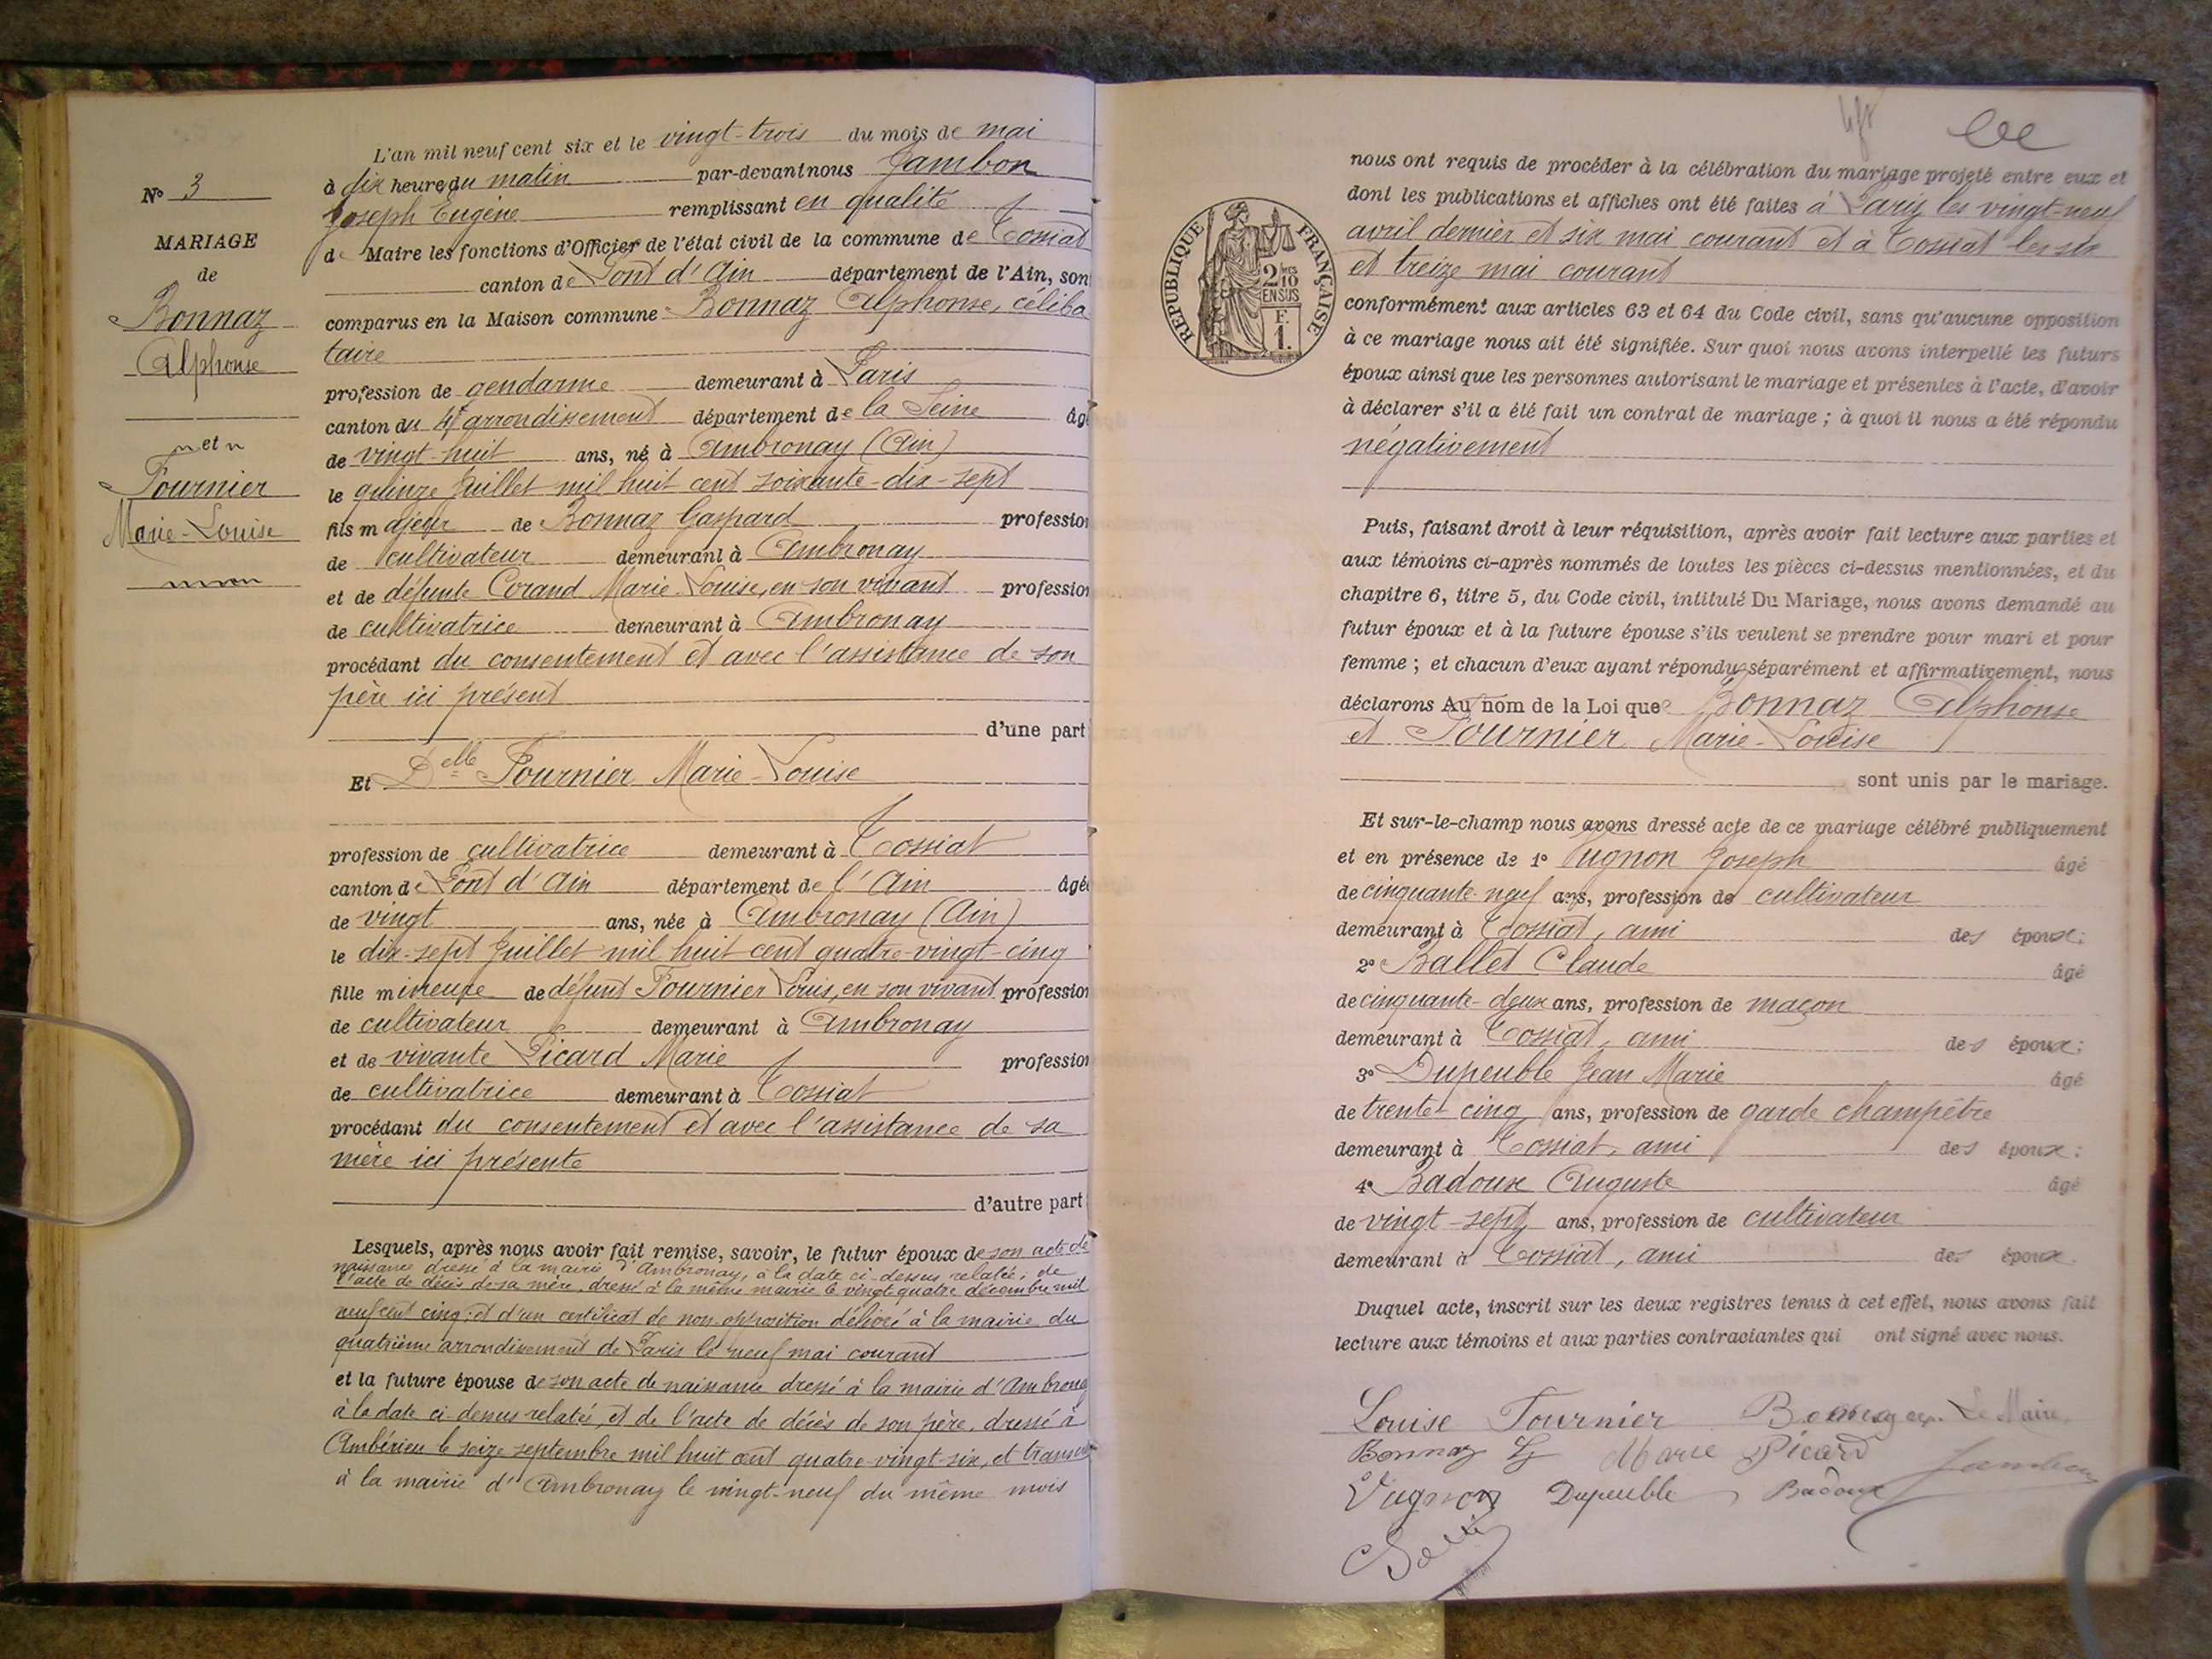 N° 3
MARIAGE
de
Bonnaz
Alphonse
et
Fournier
Marie-Louise
L'an mil neuf cent six et le vingt-trois du mois de mai
à dix heures du matin par-devant nous Jambon
Joseph Eugène remplissant en qualité
de Maire les fonctions d'Officier de l'état civil de la commune de Tossiat
canton de Pont d'Ain département de l'Ain, son
comparus en la Maison commune Bonnaz Alphonse, céliba
taire
profession de gendarme demeurant à Paris
canton du 4e arrondissement département de la Seine âg
de vingt-huit ans, né à Ambronay (Ain)
le quinze Juillet mil huit cent soixante-dix-sept
fils majeur de Bonnaz Gaspard profession
de cultivateur demeurant à Ambronay
et de défunte Corand Marie-Louise, en son vivant profession
de cultivatrice demeurant à Ambronay
procédant du consentement et avec l'assistance de son
père ici présent
d'une part
Et Delle Fournier Marie-Louise
profession de cultivatrice demeurant à Tossiat
canton de Pont d'Ain département de l'Ain âgé
de vingt ans, née à Ambronay (Ain)
le dix-sept Juillet mil huit cent quatre-vingt-cinq
fille mineure de défunt Fournier Louis, en son vivant profession
de cultivateur demeurant à Ambronay
et de vivante Picard Marie profession
de cultivatrice demeurant à Tossiat
procédant du consentement et avec l'assistance de sa
mère ici présente
d'autre part
Lesquels, après nous avoir fait remise, savoir, le futur époux de son acte de
naissance dressé à la mairie d'Ambronay, à la date ci-dessus relatée; de
l'acte de décès de sa mère, dressé à la même mairie le vingt quatre décembre mil
neuf cent cinq; et d'un certificat de non-opposition délivré à la mairie du
quatrième arrondissement de Paris le neuf mai courant
et la future épouse de son acte de naissance dressé à la mairie d'Ambronay
à la date ci-dessus relatée, et de l'acte de décès de son père, dressé à
Ambérieu le seize septembre mil huit cent quatre-vingt-six, et transcrit
à la mairie d'Ambronay le vingt-neuf du même mois
RÉPUBLIQUE FRANÇAISE
2 10mes
EN SUS
F.
1.
nous ont requis de procéder à la célébration du mariage projeté entre eux et
dont les publications et affiches ont été faites à Paris les vingt-neuf
avril dernier et six mai courant et à Tossiat les six
et treize mai courant
conformément aux articles 63 et 64 du Code civil, sans qu'aucune opposition
à ce mariage nous ait été signifiée. Sur quoi nous avons interpellé les futurs
époux ainsi que les personnes autorisant le mariage et présentes à l'acte, d'avoir
à déclarer s'il a été fait un contrat de mariage ; à quoi il nous a été répondu
négativement
Puis, faisant droit à leur réquisition, après avoir fait lecture aux parties et
aux témoins ci-après nommés de toutes les pièces ci-dessus mentionnées, et du
chapitre 6, titre 5, du Code civil, intitulé Du Mariage, nous avons demandé au
futur époux et à la future épouse s'ils veulent se prendre pour mari et pour
femme ; et chacun d'eux ayant répondu séparément et affirmativement, nous
déclarons Au nom de la Loi que Bonnaz Alphonse
et Fournier Marie-Louise
sont unis par le mariage.
Et sur-le-champ nous avons dressé acte de ce mariage célébré publiquement
et en présence de 1° Vugnon Joseph âgé
de cinquante-neuf ans, profession de cultivateur
demeurant à Tossiat, ami des époux;
2° Ballet Claude âgé
de cinquante-deux ans, profession de maçon
demeurant à Tossiat, ami des époux;
3° Dupeuble Jean Marie âgé
de trente-cinq ans, profession de garde champêtre
demeurant à Tossiat, ami des époux;
4° Badoux Auguste âgé
de vingt-sept ans, profession de cultivateur
demeurant à Tossiat, ami des époux.
Duquel acte, inscrit sur les deux registres tenus à cet effet, nous avons fait
lecture aux témoins et aux parties contractantes qui ont signé avec nous.
Louise Fournier Le Maire
Bonnaz Marie Picard Jambon
Vugnon Dupeuble Badoux